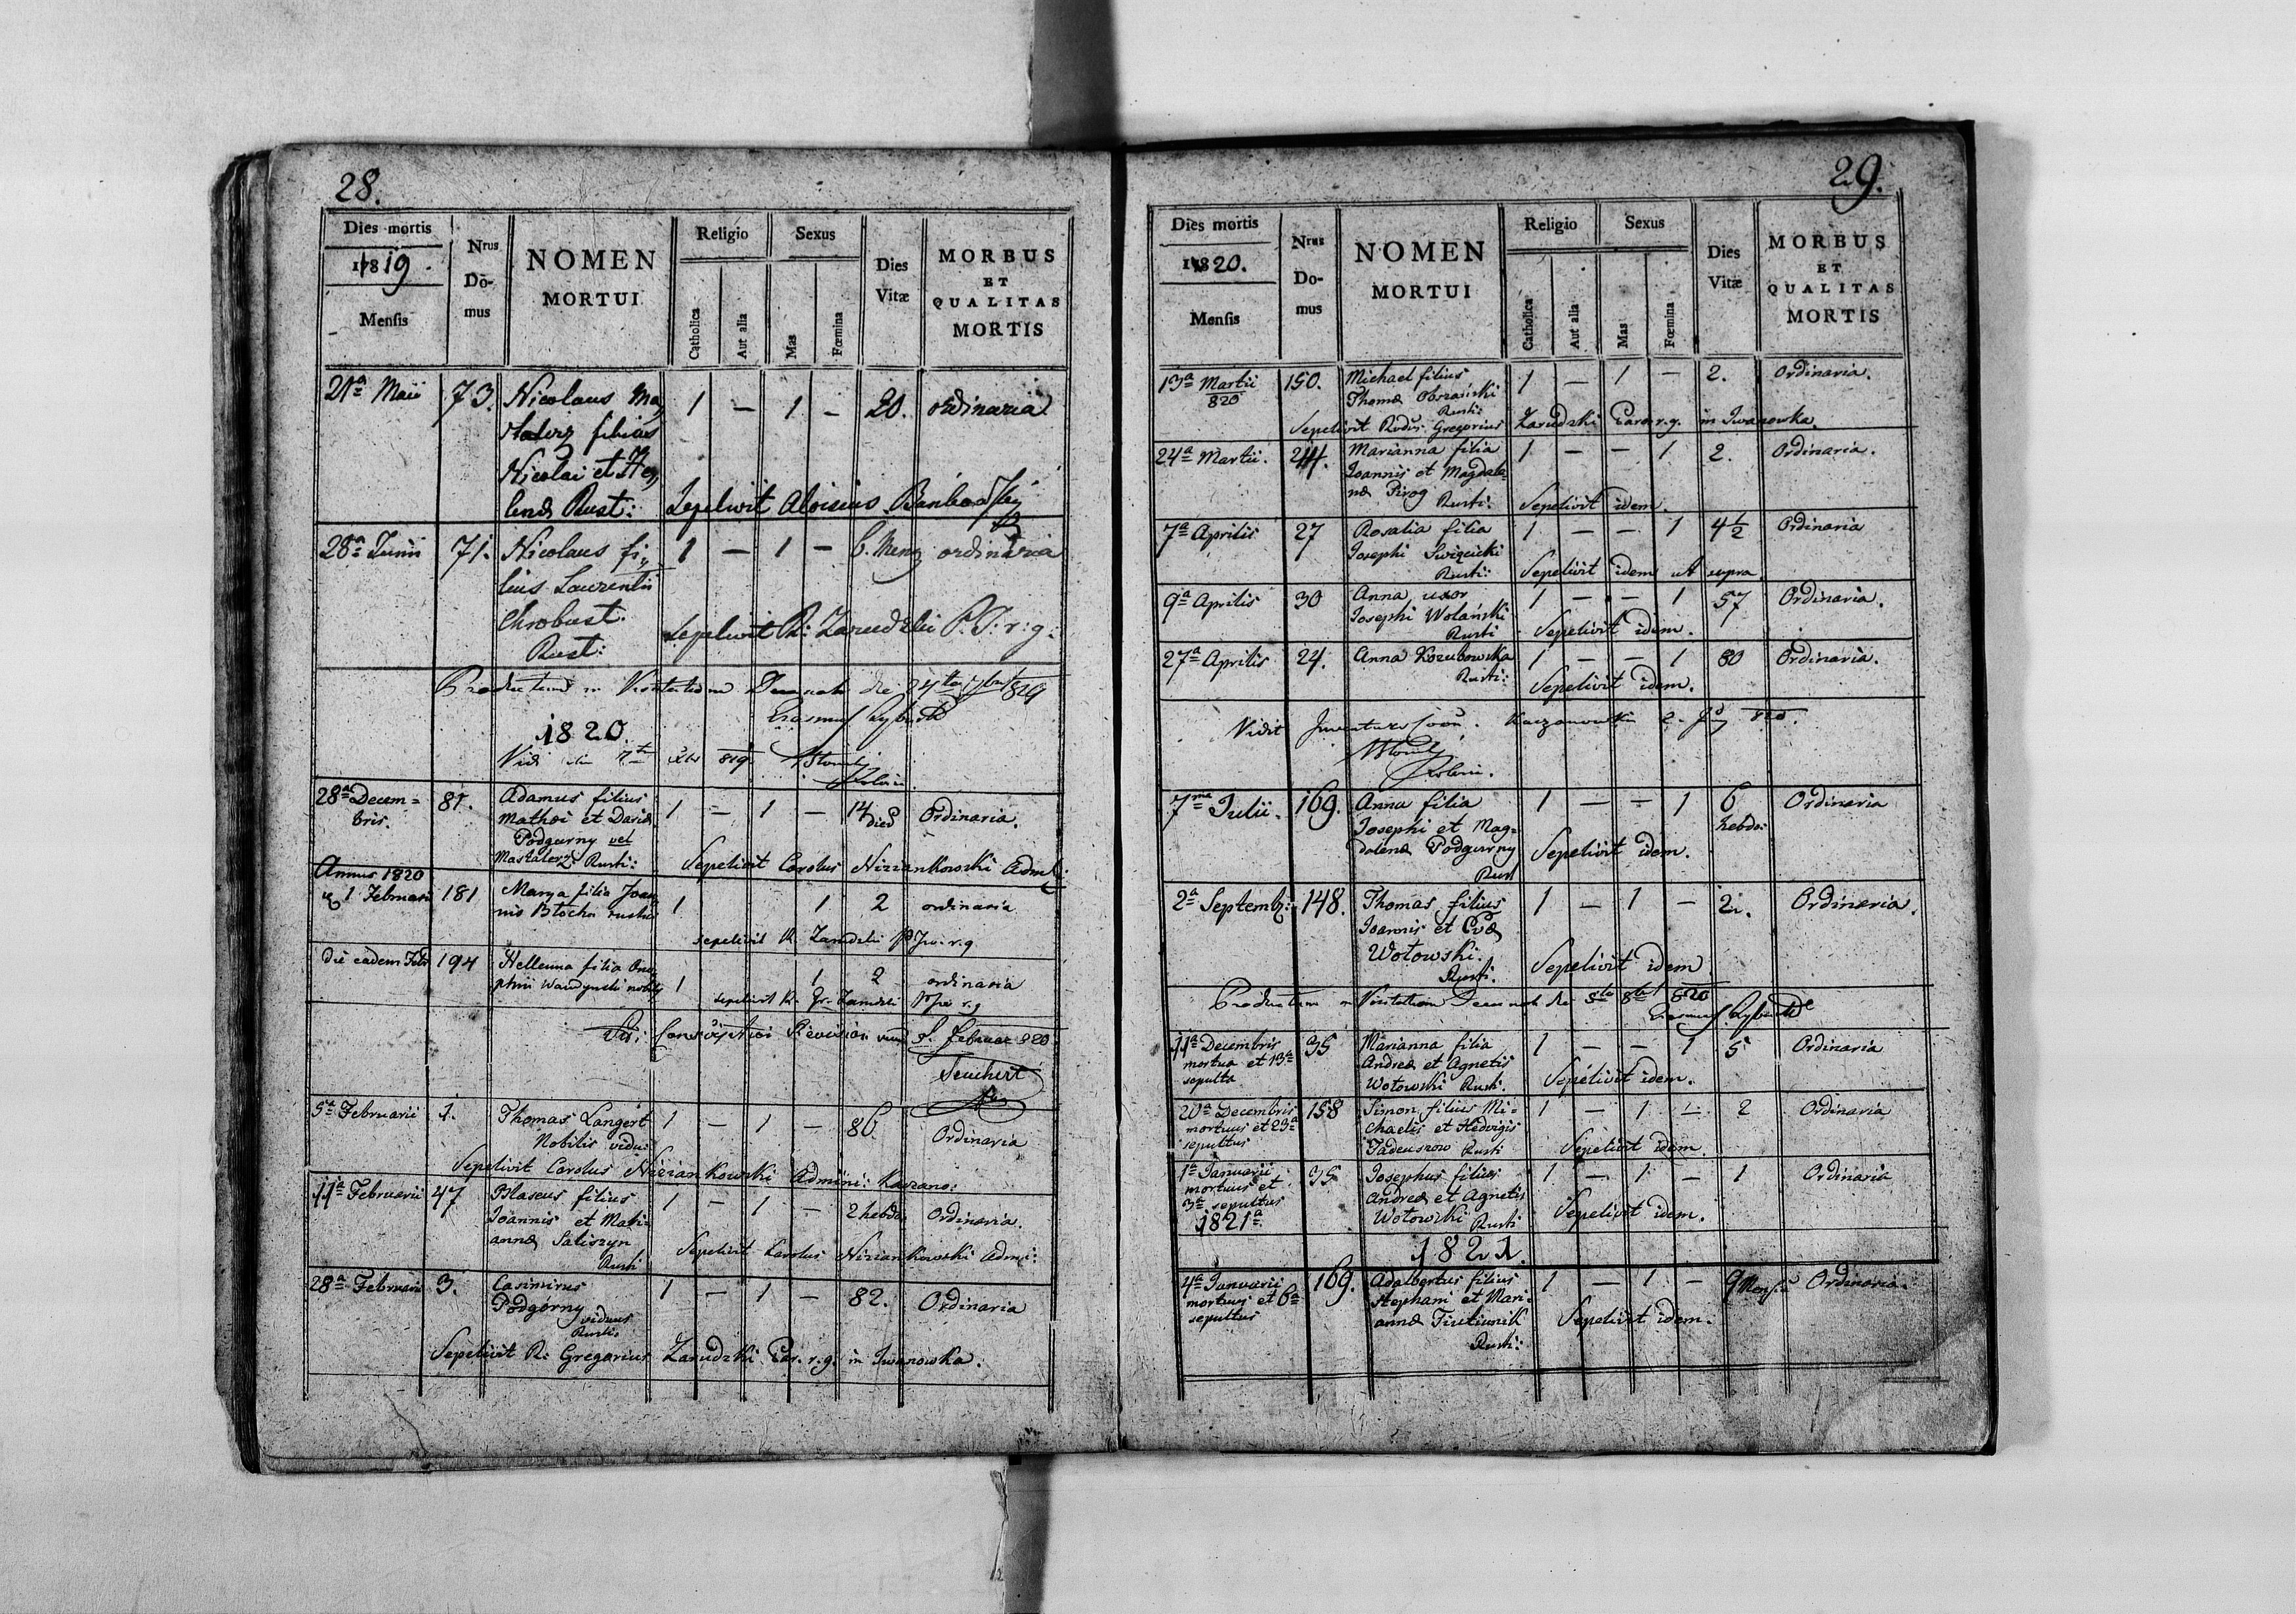 28.
Dies mortis
1819.
Mensis
Nrus Do- mus
NOMEN MORTUI
Religio
Catholica
Aut alia
Sexus
Mas
Fœmina
Dies Vitæ
MORBUS ET QUALITAS MORTIS
21a Maii 73. Nicolaus Ma 1 — 1 — 20. ordinaria
filius
Nicolai et He
lenæ Rust: Sepelivit Aloisius
28a Junii 71. Nicolaus fi 1 — 1 — 6. Mens ordinaria
lius Laurentii
Chrobust.
Rust: Sepelivit R: Zarudzki P. J: r: g:
Productum in Visitatione Decanali die
1820.
28a Decem= 81. Adamus filius 1 — 1 — 14 Ordinaria.
bris. Mathæi et Dariæ dies
Podgurny vel
Mastalerz. Rusti: Sepelivit Carolus Nizíankowski Adm:
Annus 1820
1 Februarii 181 Marya filia Joan 1 1 2 ordinaria
nis Błocha rustici
sepelivit R. Zarudzki r. g
Die eadem Feb 194 Hellenna filia Ono 1 1 2 ordinaria
phrii nobilis
sepelivit R. Gr. Zarudzki r. g
Revision Februar 820
5a Februarii 1. Thomas Langert 1 — 1 — 86. Ordinaria
Nobilis viduus
Sepelivit Carolus Niziankowski Admini: Kaczano:
11a Februarii 47 Blaseus filius 1 — 1 — 2 hebdo: Ordinaria.
Joannis et Mari=
annæ Saliszyn
Rusti Sepelivit Carolus Niziankowski Admi:
28a Februarii 3. Casimirus 1 — 1 — 82. Ordinaria
Podgórny
viduus
Rusti:
Sepelivit R: Gregorius Zarudzki Par. r. g. in Iwanowka.
29.
Dies mortis
1820.
Mensis
Nrus Do- mus
NOMEN MORTUI
Religio
Catholica
Aut alia
Sexus
Mas
Fœmina
Dies Vitæ
MORBUS ET QUALITAS MORTIS
13a Martii 150. Michael filius 1 — 1 — 2. Ordinaria.
820 Thomæ Obszański
Rusti:
Sepelivit Rdus. Gregorius Zarudzki Par. r. g. in Iwanowka
24a Martii. 244. Marianna filia 1 — — 1 2. Ordinaria.
Joannis et Magdale=
næ Pirog Rusti: Sepelivit idem.
7a Aprilis 27 Rosalia filia 1 — — 1 4 1/2 Ordinaria
Josephi Swięcicki
Rusti: Sepelivit idem ut supra
9a Aprilis 30 Anna uxor 1 — — 1 57 Ordinaria.
Josephi Wolański
Rusti Sepelivit idem.
27a Aprilis 24. Anna Kozubowska 1 — — 1 80 Ordinaria.
Rusti: Sepelivit idem.
Vidit 820.
7ma Julii. 169. Anna filia 1 — — 1 6 Ordinaria
Josephi et Mag= hebdo:
dalenæ Podgurny Sepelivit idem.
Rust
2a Septemb: 148. Thomas filius 1 — 1 — 2. Ordinaria.
Joannis et Evæ
Wotowski.
Rusti. Sepelivit idem
Productum in Visitatione Decanali die 5ta 8bris 820
11a Decembris 35 Marianna filia 1 — — 1 5 Ordinaria
mortua et 13a Andreæ et Agnetis
sepulta Wotowski Rusti. Sepelivit idem.
20a Decembris 158 Simon filius Mi= 1 — 1 — 2 Ordinaria
mortuus et 23a chaelis et Hedvigis
sepultus Tadeuszow Rusti Sepelivit idem.
1a Januarii 35 Josephus filius 1 — 1 — 1 Ordinaria
mortuus et Andreæ et Agnetis
3a sepultus Wotowski Rusti Sepelivit idem.
1821a.
1821.
4a Januarii 169. Adalbertus filius 1 — 1 — 9 Mensi Ordinaria.
mortuus et 6a Stephani et Mari=
sepultus annæ Sepelivit idem.
Rusti: